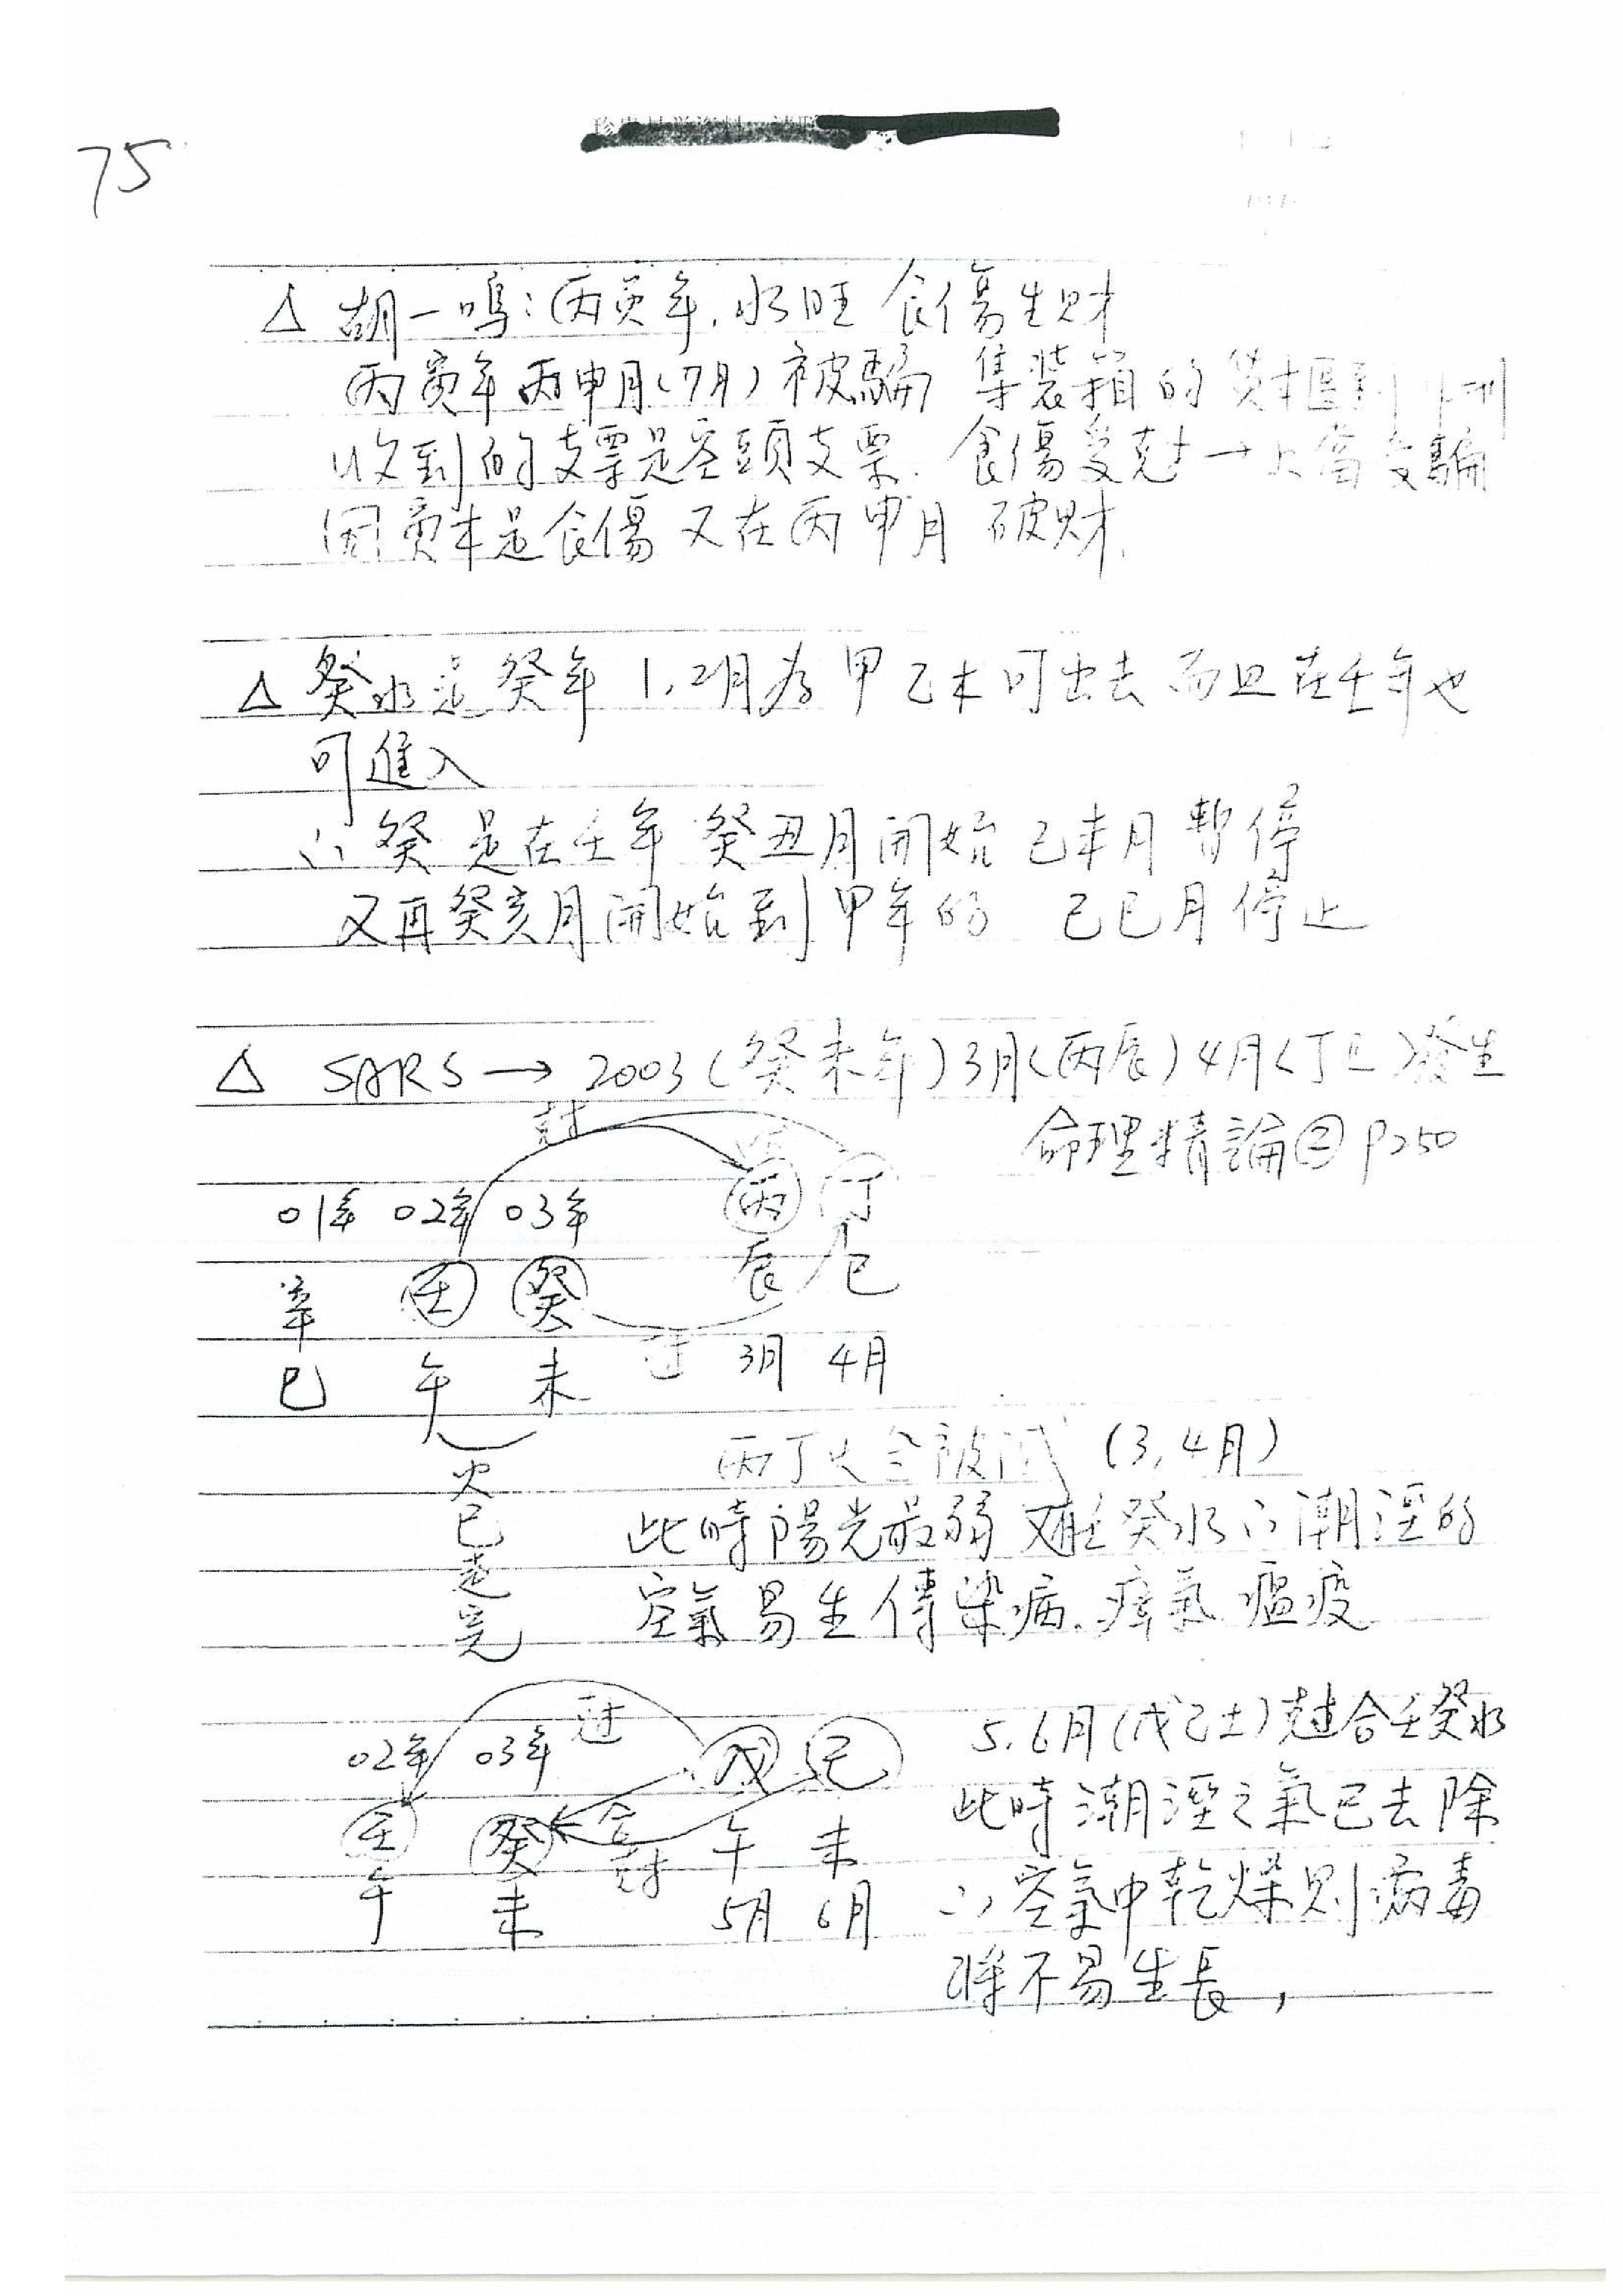 75
△ 胡一鳴:丙寅年.水旺 食傷生財
丙寅年丙申月(7月)被騙 集裝箱的貨櫃到
收到的支票是空頭支票. 食傷受尅→上當受騙
因寅本是食傷 又在丙申月 破財.
△ 癸水是癸年 1,2月為甲乙木可出去 而且在壬年也
可進入
∴癸是在壬年 癸丑月開始 己未月暫停
又再癸亥月開始到甲年的 己巳月停止
△ SARS → 2003 (癸未年) 3月(丙辰) 4月(丁巳)發生
命理精論② P250
尅
01年 02年 03年 丙 丁
辰 巳
辛 壬 癸
巳 午 未 3月 4月
火已走完
丙丁火全被 (3,4月)
此時陽光最弱 又壬癸水∴潮溼的
空氣易生傳染病.瘴氣 瘟疫
尅
02年 03年 戊 己
壬 癸 合 尅 午 未
午 未 5月 6月
5.6月(戊己土)尅合壬癸水
此時潮溼之氣已去除
∴空氣中乾燥則病毒
將不易生長,